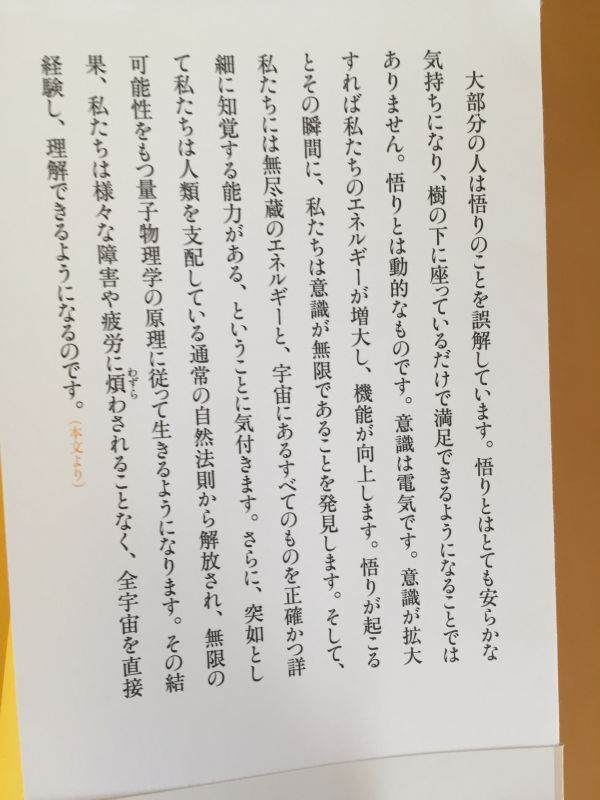 大部分の人は悟りのことを誤解しています。悟りとはとても安らかな
気持ちになり、樹の下に座っているだけで満足できるようになることでは
ありません。悟りとは動的なものです。意識は電気です。意識が拡大
すれば私たちのエネルギーが増大し、機能が向上します。悟りが起こる
とその瞬間に、私たちは意識が無限であることを発見します。そして、
私たちには無尽蔵のエネルギーと、宇宙にあるすべてのものを正確かつ詳
細に知覚する能力がある、ということに気付きます。さらに、突如とし
て私たちは人類を支配している通常の自然法則から解放され、無限の
可能性をもつ量子物理学の原理に従って生きるようになります。その結
果、私たちは様々な障害や疲労に煩わされることなく、全宇宙を直接
わずら
経験し、理解できるようになるのです。(本文より)